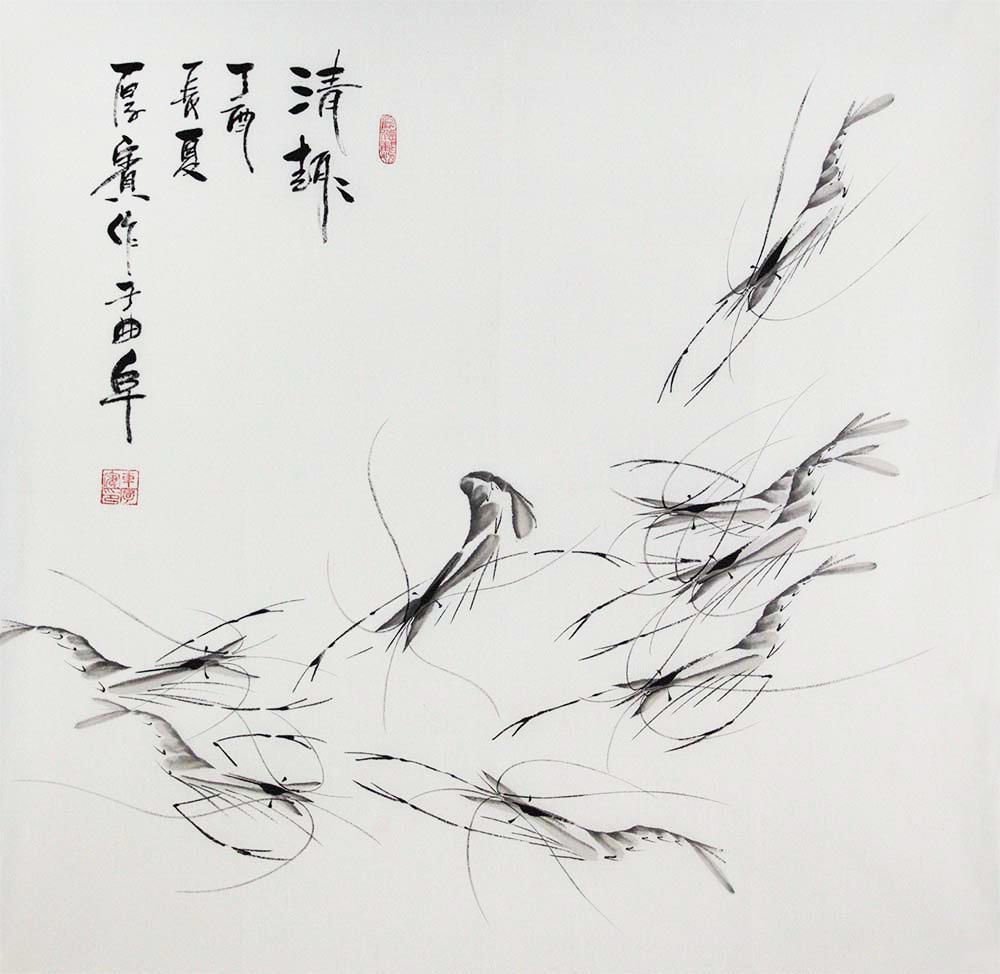 清趣
丁酉
長夏
厚賓作于曲阜